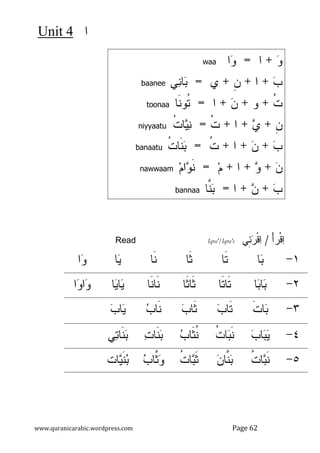 Unit 4 ا
وَ + ا = وَا waa
بَ + ا + نِ + ي = بَانِي baanee
تُ + و + نَ + ا = تُونَا toonaa
نِ + يَّ + ا + تُ = نِيَّاتُ niyyaatu
بَ + نَ + ا + تُ = بَنَاتُ banaatu
نَ + وَّ + ا + مْ = نَوَّامْ nawwaam
بَ + نَّ + ا = بَنَّا bannaa
اِقْرَأْ / اِقْرَئِي Iqra'/Iqra'i Read
١- بَا تَا ثَا نَا يَا وَا
٢- بَابَا تَاتَا ثَاثَا نَانَا يَايَا وَاوَا
٣- بَاتَ تَابَ ثَابَ نَابُ يَابَ
٤- يَبَابَ نَبَاتُ نُثَابُ بَنَاتِ بَنَاتِي
٥- نَبَّاتُ بَنَّانَ ثَبَّاتُ وَثَّابُ بُنَيَّاتِ
www.quranicarabic.wordpress.com Page 62